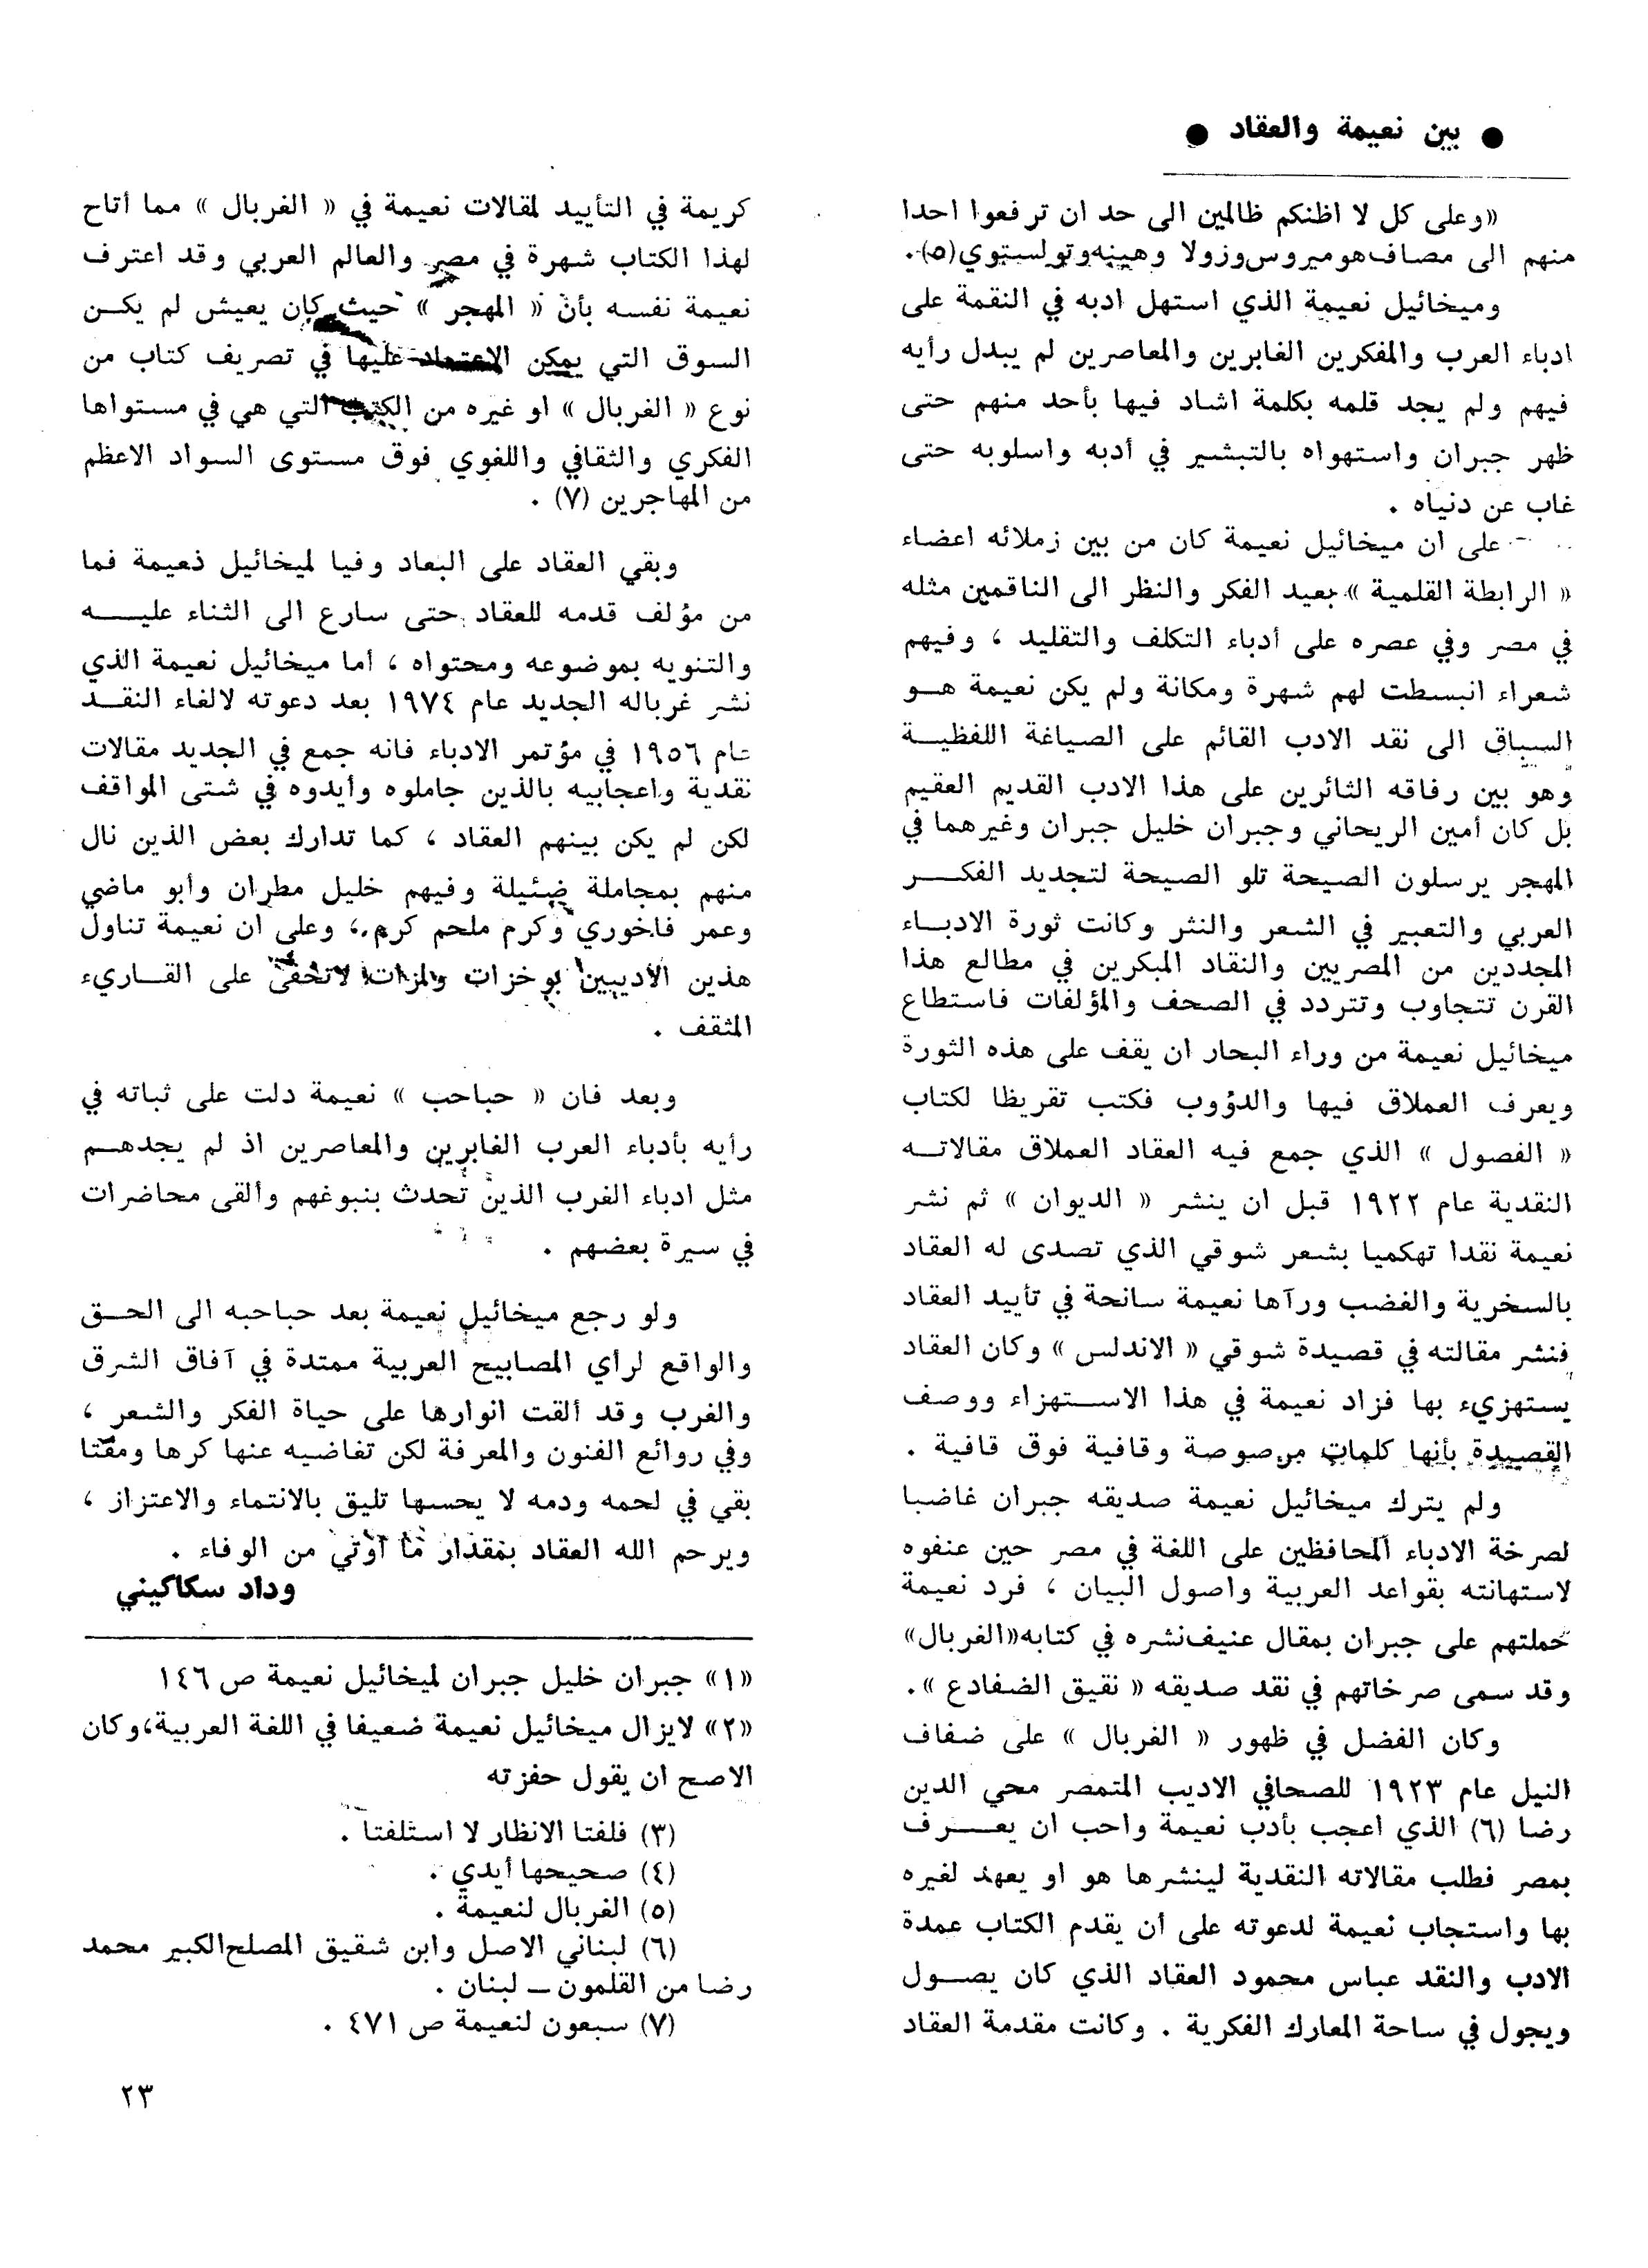 ● بين نعيمة والعقاد ●
«وعلى كل لا اظنكم ظالمين الى حد ان ترفعوا احدا
منهم الى مصاف هوميروس وزولا وهينه وتولستوي(٥).
وميخائيل نعيمة الذي استهل ادبه في النقمة على
ادباء العرب والمفكرين الغابرين والمعاصرين لم يبدل رأيه
فيهم ولم يجد قلمه بكلمة اشاد فيها بأحد منهم حتى
ظهر جبران واستهواه بالتبشير في أدبه واسلوبه حتى
غاب عن دنياه .
على ان ميخائيل نعيمة كان من بين زملائه اعضاء
« الرابطة القلمية » بعيد الفكر والنظر الى الناقمين مثله
في مصر وفي عصره على أدباء التكلف والتقليد ، وفيهم
شعراء انبسطت لهم شهرة ومكانة ولم يكن نعيمة هو
السباق الى نقد الادب القائم على الصياغة اللفظية
وهو بين رفاقه الثائرين على هذا الادب القديم العقيم
بل كان أمين الريحاني وجبران خليل جبران وغيرهما في
المهجر يرسلون الصيحة تلو الصيحة لتجديد الفكر
العربي والتعبير في الشعر والنثر وكانت ثورة الادباء
المجددين من المصريين والنقاد المبكرين في مطالع هذا
القرن تتجاوب وتتردد في الصحف والمؤلفات فاستطاع
ميخائيل نعيمة من وراء البحار ان يقف على هذه الثورة
ويعرف العملاق فيها والدؤوب فكتب تقريظا لكتاب
« الفصول » الذي جمع فيه العقاد العملاق مقالاته
النقدية عام ١٩٢٢ قبل ان ينشر « الديوان » ثم نشر
نعيمة نقدا تهكميا بشعر شوقي الذي تصدى له العقاد
بالسخرية والغضب ورآها نعيمة سانحة في تأييد العقاد
فنشر مقالته في قصيدة شوقي « الاندلس » وكان العقاد
يستهزيء بها فزاد نعيمة في هذا الاستهزاء ووصف
القصيدة بأنها كلمات مرصوصة وقافية فوق قافية .
ولم يترك ميخائيل نعيمة صديقه جبران غاضبا
لصرخة الادباء المحافظين على اللغة في مصر حين عنفوه
لاستهانته بقواعد العربية واصول البيان ، فرد نعيمة
حملتهم على جبران بمقال عنيف نشره في كتابه«الغربال»
وقد سمى صرخاتهم في نقد صديقه « نقيق الضفادع ».
وكان الفضل في ظهور « الغربال » على ضفاف
النيل عام ١٩٢٣ للصحافي الاديب المتمصر محي الدين
رضا (٦) الذي اعجب بأدب نعيمة واحب ان يعرف
بمصر فطلب مقالاته النقدية لينشرها هو او يعهد لغيره
بها واستجاب نعيمة لدعوته على أن يقدم الكتاب عمدة
الادب والنقد عباس محمود العقاد الذي كان يصول
ويجول في ساحة المعارك الفكرية . وكانت مقدمة العقاد
كريمة في التأييد لمقالات نعيمة في « الغربال » مما أتاح
لهذا الكتاب شهرة في مصر والعالم العربي وقد اعترف
نعيمة نفسه بأن « المهجر » حيث كان يعيش لم يكن
السوق التي يمكن الاعتماد عليها في تصريف كتاب من
نوع « الغربال » او غيره من الكتب التي هي في مستواها
الفكري والثقافي واللغوي فوق مستوى السواد الاعظم
من المهاجرين (٧) .
وبقي العقاد على البعاد وفيا لميخائيل نعيمة فما
من مؤلف قدمه للعقاد حتى سارع الى الثناء عليه
والتنويه بموضوعه ومحتواه ، أما ميخائيل نعيمة الذي
نشر غرباله الجديد عام ١٩٧٤ بعد دعوته لالغاء النقد
عام ١٩٥٦ في مؤتمر الادباء فانه جمع في الجديد مقالات
نقدية واعجابيه بالذين جاملوه وأيدوه في شتى المواقف
لكن لم يكن بينهم العقاد ، كما تدارك بعض الذين نال
منهم بمجاملة ضئيلة وفيهم خليل مطران وأبو ماضي
وعمر فاخوري وكرم ملحم كرم ، وعلى ان نعيمة تناول
هذين الأديبين بوخزات ولمزات لاتخفى على القاريء
المثقف .
وبعد فان « حباحب » نعيمة دلت على ثباته في
رأيه بأدباء العرب الغابرين والمعاصرين اذ لم يجدهم
مثل ادباء الغرب الذين تحدث بنبوغهم وألقى محاضرات
في سيرة بعضهم .
ولو رجع ميخائيل نعيمة بعد حباحبه الى الحق
والواقع لرأي المصابيح العربية ممتدة في آفاق الشرق
والغرب وقد ألقت انوارها على حياة الفكر والشعر ،
وفي روائع الفنون والمعرفة لكن تغاضيه عنها كرها ومقتا
بقي في لحمه ودمه لا يحسبها تليق بالانتماء والاعتزاز ،
ويرحم الله العقاد بمقدار ما أوتي من الوفاء .
وداد سكاكيني
«١» جبران خليل جبران لميخائيل نعيمة ص ١٤٦
«٢» لايزال ميخائيل نعيمة ضعيفا في اللغة العربية،وكان
الاصح ان يقول حفزته
(٣) فلفتا الانظار لا استلفتا .
(٤) صحيحها أيدي .
(٥) الغربال لنعيمة .
(٦) لبناني الاصل وابن شقيق المصلح الكبير محمد
رضا من القلمون ــ لبنان .
(٧) سبعون لنعيمة ص ٤٧١ .
٢٣